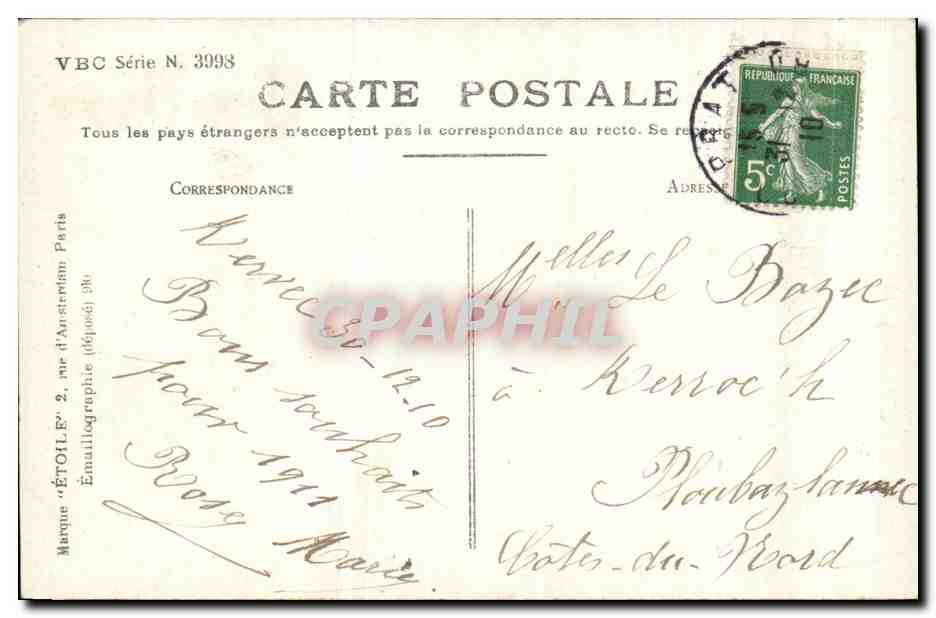 VBC Série N. 3998
CARTE POSTALE
Tous les pays étrangers n'acceptent pas la correspondance au recto. Se
CORRESPONDANCE
ADRESSE
RÉPUBLIQUE FRANÇAISE
5c
POSTES
PRAT
15 5
31 12
10
Marque "ÉTOILE" 2, rue d'Amsterdam Paris
Émaillographie (déposé) 910
30-12-10
Bons souhaits
pour 1911
Rose Marie
Melles Le Bozec
à Kerroc'h
Ploubazlannec
Côtes-du-Nord
CPAPHIL